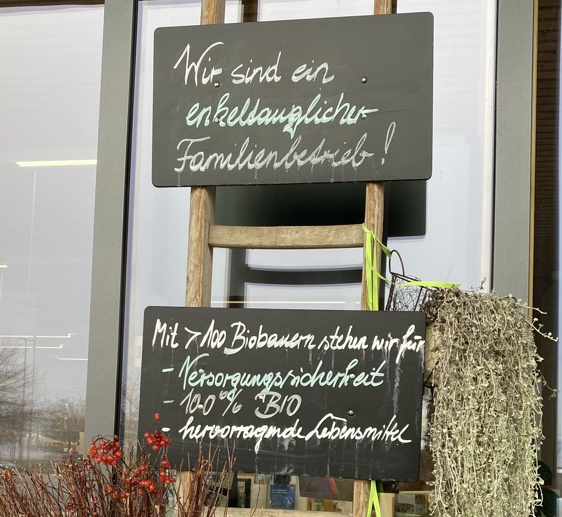 Wir sind ein
enkeltauglicher
Familienbetrieb!
Mit >100 Biobauern stehen wir für
- Versorgungssicherheit
- 100% BIO
- hervorragende Lebensmittel